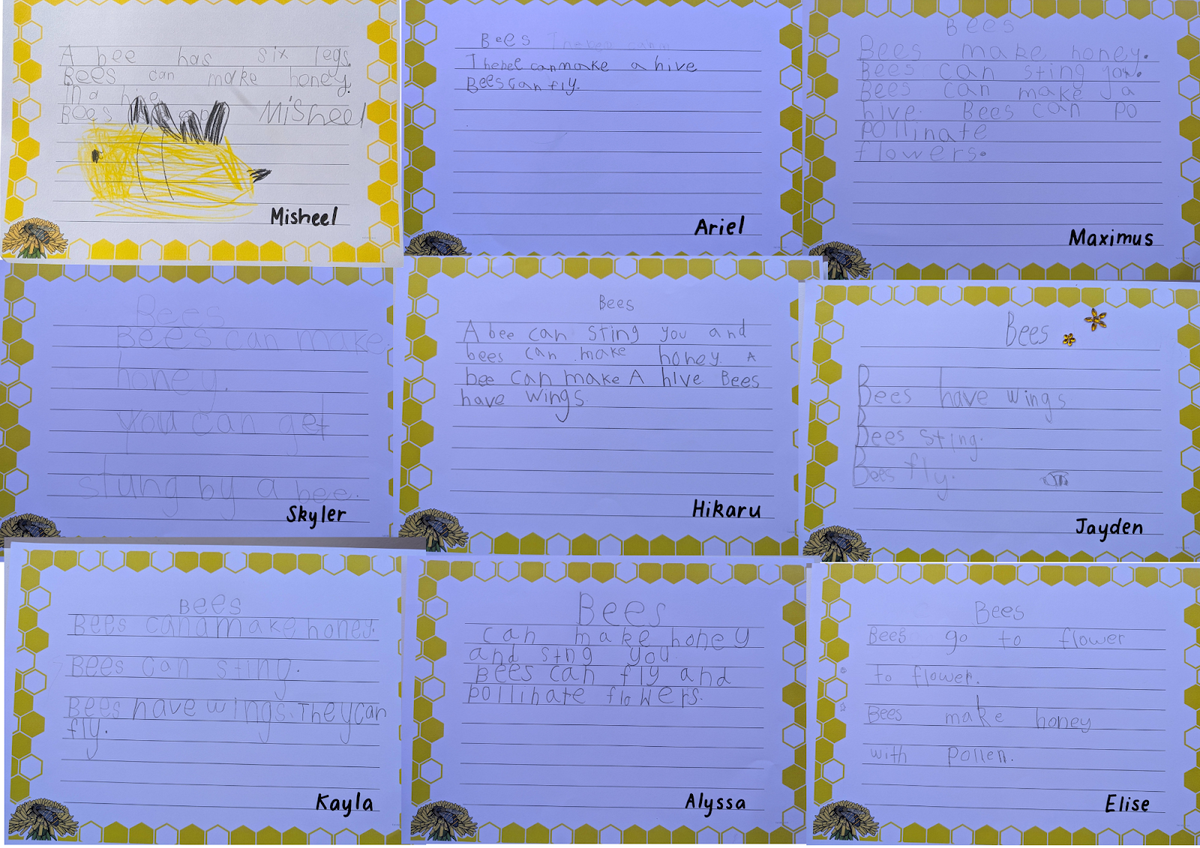 A bee has six legs.
Bees can make honey.
In a
Bees
Misheel
Misheel
Bees
can make a hive
Bees can fly.
Ariel
Bees
Bees make honey.
Bees can sting you.
Bees can make a
hive. Bees can po
pollinate
flowers.
Maximus
Bees
Bees can make
honey.
you can get
stung by a bee.
Skyler
Bees
A bee can sting you and
bees can make honey. A
bee can make A hive Bees
have wings.
Hikaru
Bees
Bees have wings
Bees sting.
Bees fly.
Jayden
Bees
Bees canamake honey.
Bees can sting.
Bees have wings. They can
fly.
Kayla
Bees
can make honey
and stng you
Bees can fly and
pollinate flowers.
Alyssa
Bees
Bees go to flower
to flower.
Bees make honey
with pollen.
Elise